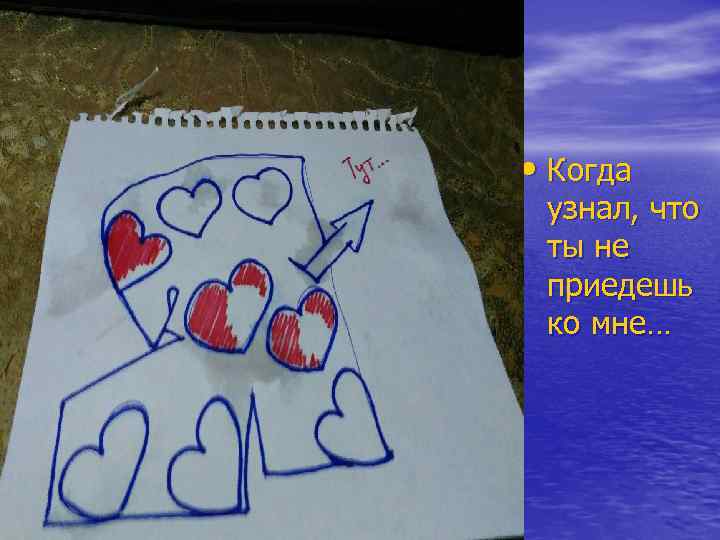 Тут...
• Когда
узнал, что
ты не
приедешь
ко мне…